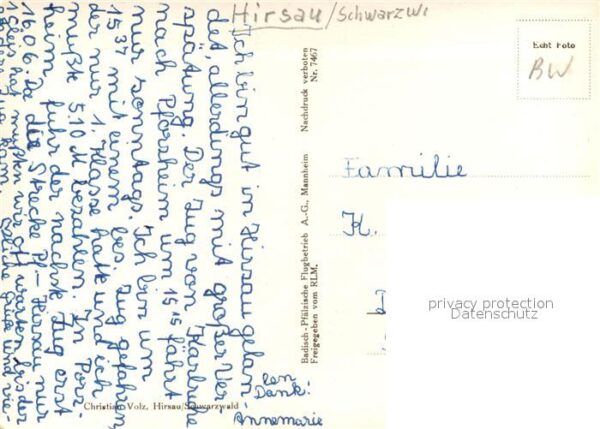 Hirsau/Schwarzw
Echt Foto
BW
Ich bin gut in Hirsau gelan-
det, allerdings mit großer Ver-
spätung. Der Zug von Karlsruhe
nach Pforzheim um 15¹⁵ fährt
nur sonntags. Ich bin um
15³⁷ mit einem bes. Zug gefahren
der nur 1. Klasse hatte und ich
mußte 5.10 M bezahlen. In Pforz-
heim fuhr der nächste Zug erst
16.06. Da die Strecke Pf.-Hirsau nur
Gleis hat mußten wir oft warten bis der
andere Zug kam. Herzliche Grüße und vie-
len
Dank!
Annemarie
Badisch-Pfälzische Flugbetrieb A.-G., Mannheim Nachdruck verboten
Freigegeben vom RLM. Nr. 7467
Familie
H.
Christian Volz, Hirsau/Schwarzwald
privacy protection
Datenschutz